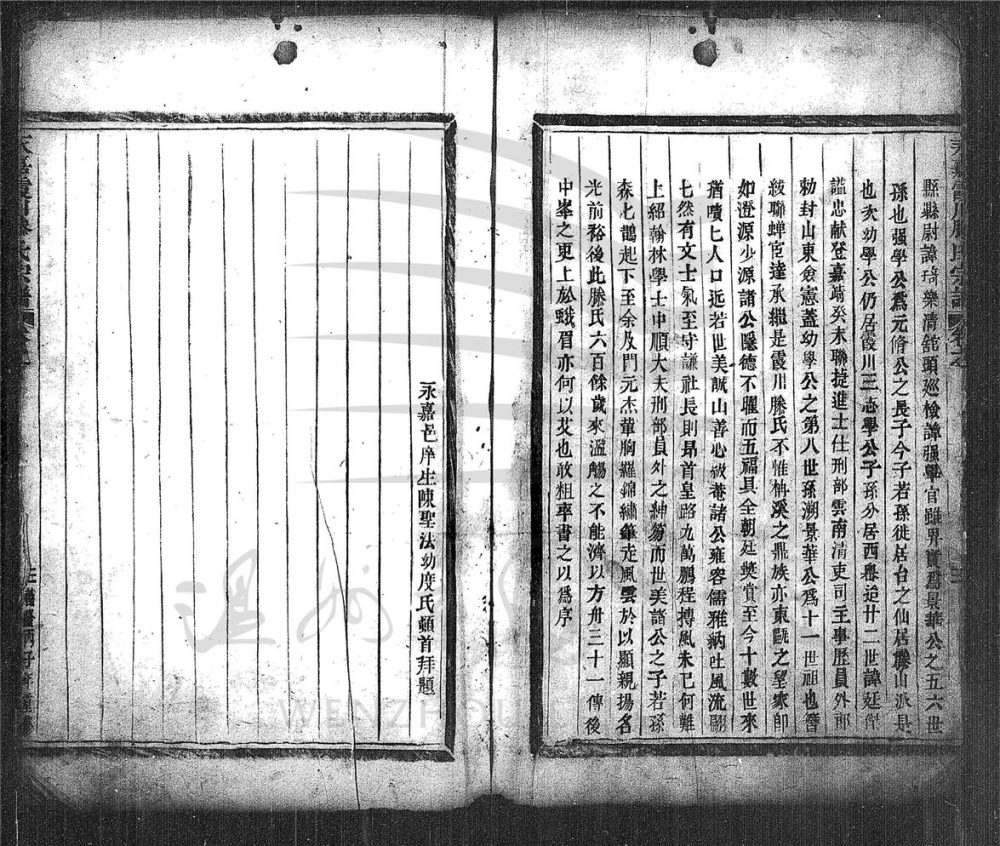 縣縣尉諱琦樂清舘頭巡檢諱强學官雖畀實爲景華公之五六世
孫也强學公爲元脩公之長子今子若孫徙居台之仙居滕山派是
也次幼學公仍居霞川三志學公子孫分居西嶴迨廿二世諱廷
謚忠献登嘉靖癸未聯捷進士仕刑部雲南清吏司主事歴員外郎
勅封山東僉憲蓋幼學公之第八世孫溯景華公爲十一世祖也簪
紱聯蟬宦達承繼是霞川滕氏不惟楠溪之鼎族亦東甌之望家卽
如澄源少源諸公隱德不曜而五福具全朝廷奬賞至今十數世來
猶嘖七人口近若世美誠山善心敬菴諸公雍容儒雅吐風流翩
七然有文士氣至守謙社長則昻首皇路九萬鵬程搏風未已何難
上紹翰林學士中順大夫刑部員外之紳笏而世美諸公之子若孫
森七鵲起下至余及門元杰輩胸羅錦繡筆走風雲於以顯親揚名
光前裕後此滕氏六百餘歲來溫觴之不能濟以方舟三十一傳後
中峯之更上於蛾眉亦何以艾也敢粗率書之以爲序
永嘉邑庠生陳聖法幼度氏頓首拜題